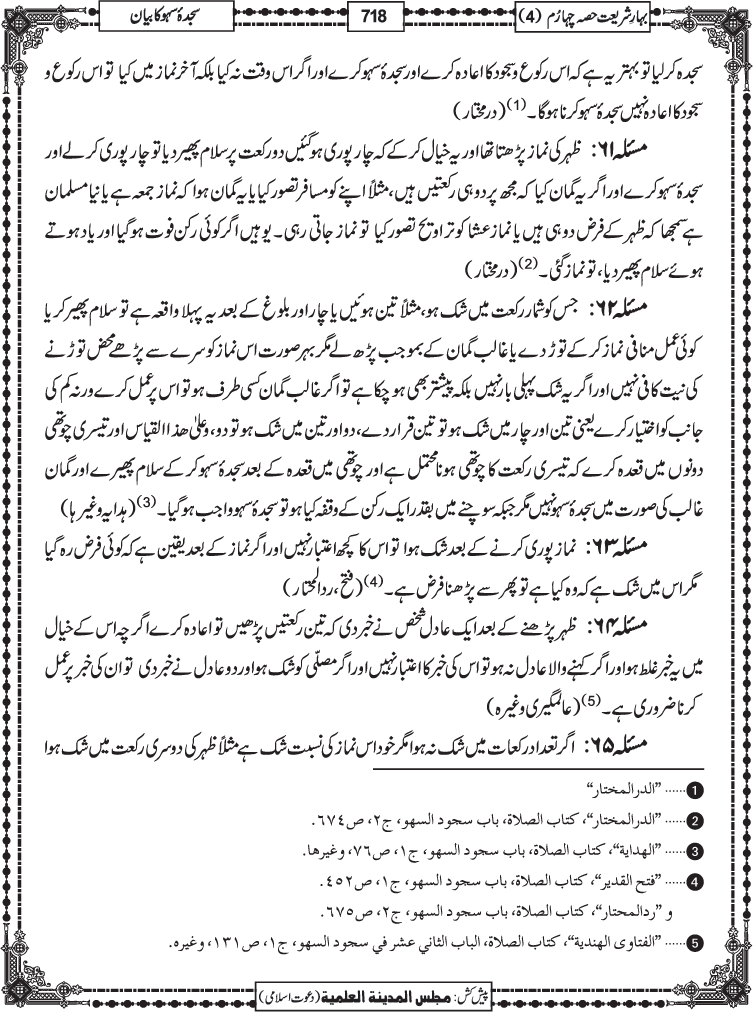 بہارِشریعت حصہ چہارم (4)
718
سجدۂ سہو کا بیان
سجدہ کرلیا تو بہتر یہ ہے کہ اس رکوع وسجود کا اعادہ کرے اور سجدۂ سہو کرے اور اگر اس وقت نہ کیا بلکہ آخر نماز میں کیا تو اس رکوع و
سجود کا اعادہ نہیں سجدۂ سہو کرنا ہوگا۔(1) (درمختار)
مسئلہ ۶۱: ظہر کی نماز پڑھتا تھا اور یہ خیال کر کے کہ چار پوری ہوگئیں دو رکعت پر سلام پھیر دیا تو چار پوری کر لے اور
سجدۂ سہو کرے اور اگر یہ گمان کیا کہ مجھ پر دو ہی رکعتیں ہیں، مثلاً اپنے کو مسافر تصور کیا یا یہ گمان ہوا کہ نماز جمعہ ہے یا نیا مسلمان
ہے سمجھا کہ ظہر کے فرض دو ہی ہیں یا نماز عشا کو تراویح تصور کیا تو نماز جاتی رہی۔ یوہیں اگر کوئی رکن فوت ہوگیا اور یاد ہوتے
ہوئے سلام پھیر دیا، تو نماز گئی۔(2) (درمختار)
مسئلہ ۶۲: جس کو شمار رکعت میں شک ہو، مثلاً تین ہوئیں یا چار اور بلوغ کے بعد یہ پہلا واقعہ ہے تو سلام پھیر کر یا
کوئی عمل منافی نماز کر کے توڑ دے یا غالب گمان کے بموجب پڑھ لے مگر بہر صورت اس نماز کو سرے سے پڑھے محض توڑنے
کی نیت کافی نہیں اور اگر یہ شک پہلی بار نہیں بلکہ پیشتر بھی ہو چکا ہے تو اگر غالب گمان کسی طرف ہو تو اس پر عمل کرے ورنہ کم کی
جانب کو اختیار کرے یعنی تین اور چار میں شک ہو تو تین قرار دے، دو اور تین میں شک ہو تو دو، وعلیٰ ھذا القیاس اور تیسری چوتھی
دونوں میں قعدہ کرے کہ تیسری رکعت کا چوتھی ہونا محتمل ہے اور چوتھی میں قعدہ کے بعد سجدۂ سہو کر کے سلام پھیرے اور گمان
غالب کی صورت میں سجدۂ سہو نہیں مگر جبکہ سوچنے میں بقدر ایک رکن کے وقفہ کیا ہو تو سجدۂ سہو واجب ہوگیا۔(3) (ہدایہ وغیرہا)
مسئلہ ۶۳: نماز پوری کرنے کے بعد شک ہوا تو اس کا کچھ اعتبار نہیں اور اگر نماز کے بعد یقین ہے کہ کوئی فرض رہ گیا
مگر اس میں شک ہے کہ وہ کیا ہے تو پھر سے پڑھنا فرض ہے۔(4) (فتح، ردالمحتار)
مسئلہ ۶۴: ظہر پڑھنے کے بعد ایک عادل شخص نے خبر دی کہ تین رکعتیں پڑھیں تو اعادہ کرے اگر چہ اس کے خیال
میں یہ خبر غلط ہو اور اگر کہنے والا عادل نہ ہو تو اس کی خبر کا اعتبار نہیں اور اگر مصلّی کو شک ہو اور دو عادل نے خبر دی تو ان کی خبر پر عمل
کرنا ضروری ہے۔(5) (عالمگیری وغیرہ)
مسئلہ ۶۵: اگر تعداد رکعات میں شک نہ ہوا مگر خود اس نماز کی نسبت شک ہے مثلاً ظہر کی دوسری رکعت میں شک ہوا
1 ...... ”الدرالمختار“
2 ...... ”الدرالمختار“، کتاب الصلاة، باب سجود السهو، ج٢، ص٦٧٤.
3 ...... ”الهداية“، کتاب الصلاة، باب سجود السهو، ج١، ص٧٦، وغیرها.
4 ...... ”فتح القدير“، کتاب الصلاة، باب سجود السهو، ج١، ص٤٥٢.
و ”ردالمحتار“، کتاب الصلاة، باب سجود السهو، ج٢، ص٦٧٥.
5 ...... ”الفتاوى الهندية“، کتاب الصلاة، الباب الثاني عشر في سجود السهو، ج١، ص١٣١، وغيره.
پیش کش: مجلس المدينة العلمية (دعوت اسلامی)